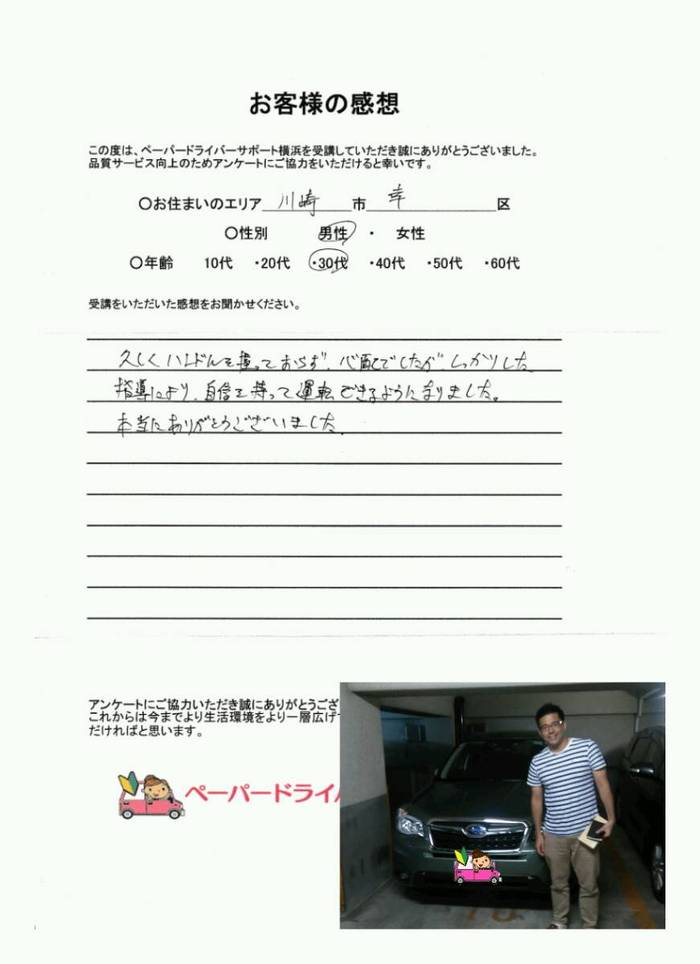 お客様の感想
この度は、ペーパードライバーサポート横浜を受講していただき誠にありがとうございました。
品質サービス向上のためアンケートにご協力をいただけると幸いです。
○お住まいのエリア 川崎 市 幸 区
○性別 男性 ・ 女性
○年齢 10代 ・20代 ・30代 ・40代 ・50代 ・60代
受講をいただいた感想をお聞かせください。
久しくハンドルを握っておらず、心配でしたが、しっかりした
指導により、自信を持って運転できるようになりました。
本当にありがとうございました。
アンケートにご協力いただき誠にありがとうござ
これからは今までより生活環境をより一層広げ
だければと思います。
ペーパードライ